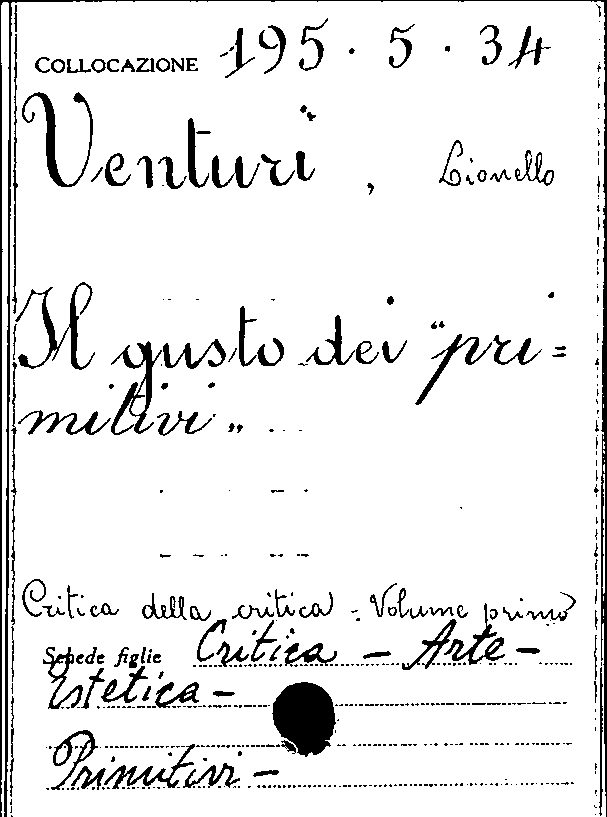 COLLOCAZIONE 195 · 5 · 34
Venturi, Lionello
Il gusto dei "pri=
mitivi"
Critica della critica = Volume primo
Schede figlie Critica – Arte –
Estetica –
Primitivi –